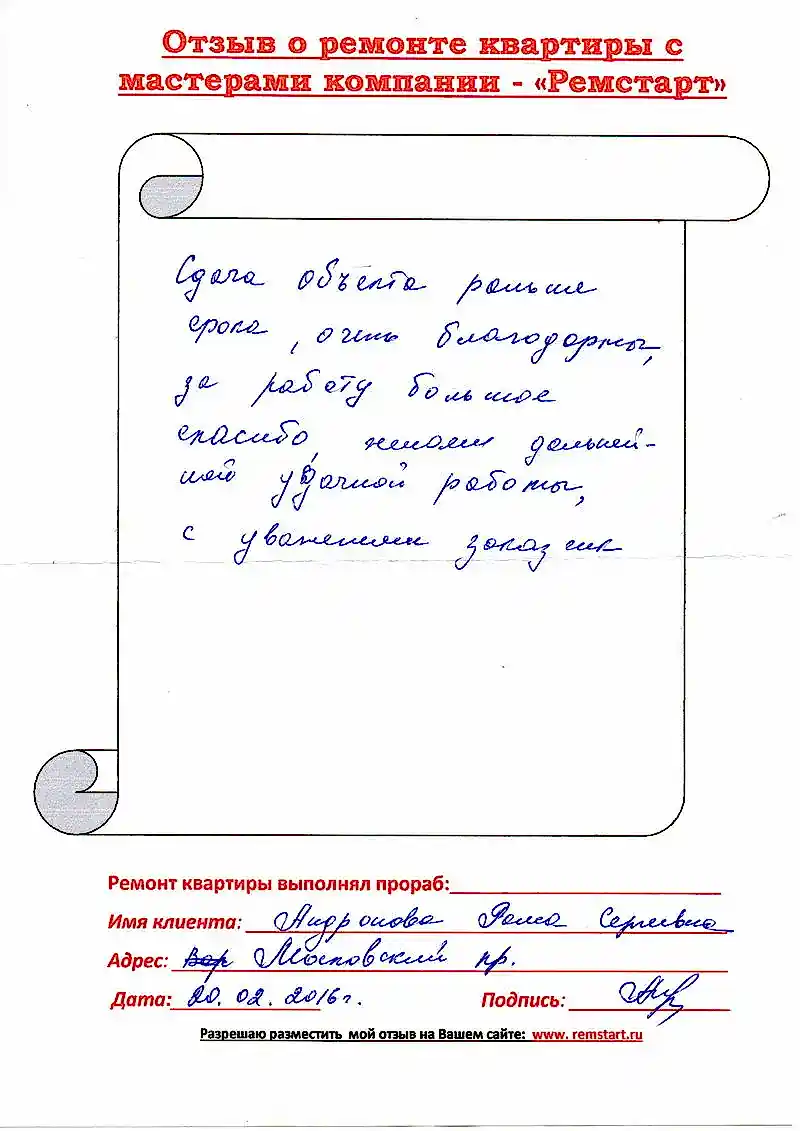 Отзыв о ремонте квартиры с
мастерами компании - «Ремстарт»
Сдача объекта раньше
срока, очень благодарны,
за работу большое
спасибо, желаем дальней-
шей удачной работы,
с уважением заказчик
Ремонт квартиры выполнял прораб:
Имя клиента: Андронова Сергеевна
Адрес: Московский пр.
Дата: 20.02.2016г. Подпись:
Разрешаю разместить мой отзыв на Вашем сайте: www. remstart.ru